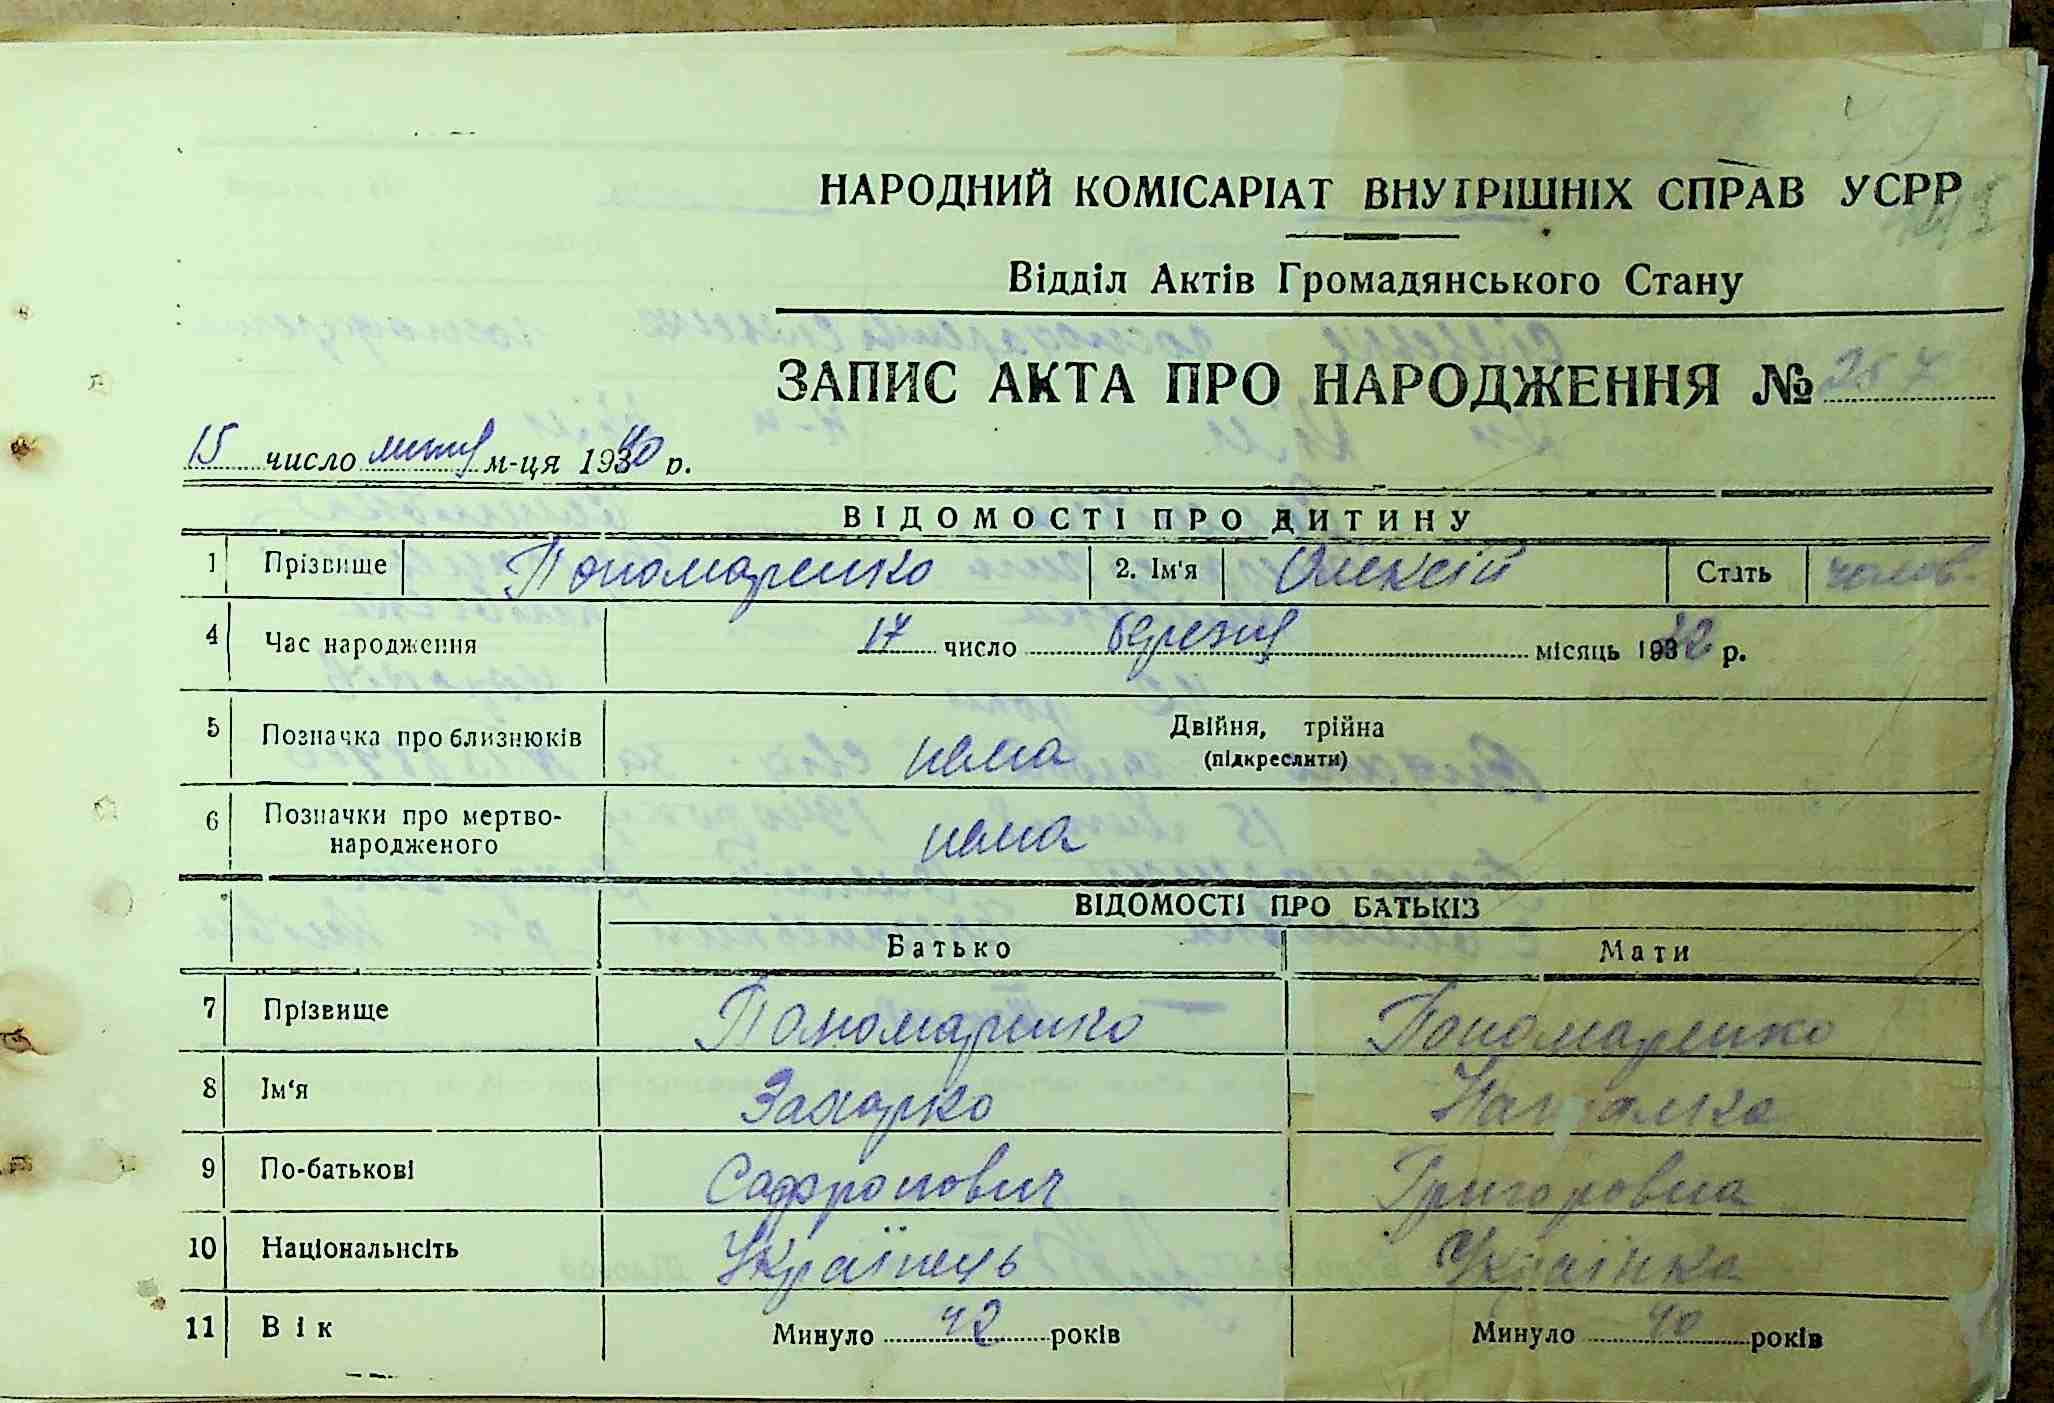 НАРОДНИЙ КОМІСАРІАТ ВНУТРІШНІХ СПРАВ УСРР
Відділ Актів Громадянського Стану
ЗАПИС АКТА ПРО НАРОДЖЕННЯ № 257
15 число лютого м-ця 1940 р.
ВІДОМОСТІ ПРО ДИТИНУ
1 Прізвище Пономаренко 2. Ім'я Олексій Стать чолов.
4 Час народження 17 число березня місяць 1932 р.
5 Позначка про близнюків нема Двійня, трійна
(підкреслити)
6 Позначки про мертво-
народженого нема
ВІДОМОСТІ ПРО БАТЬКІВ
Батько Мати
7 Прізвище Пономаренко Пономаренко
8 Ім'я Захарко Наталка
9 По-батькові Софронович Григоровна
10 Національнсіть Українець Українка
11 Вік Минуло 42 років Минуло 40 років